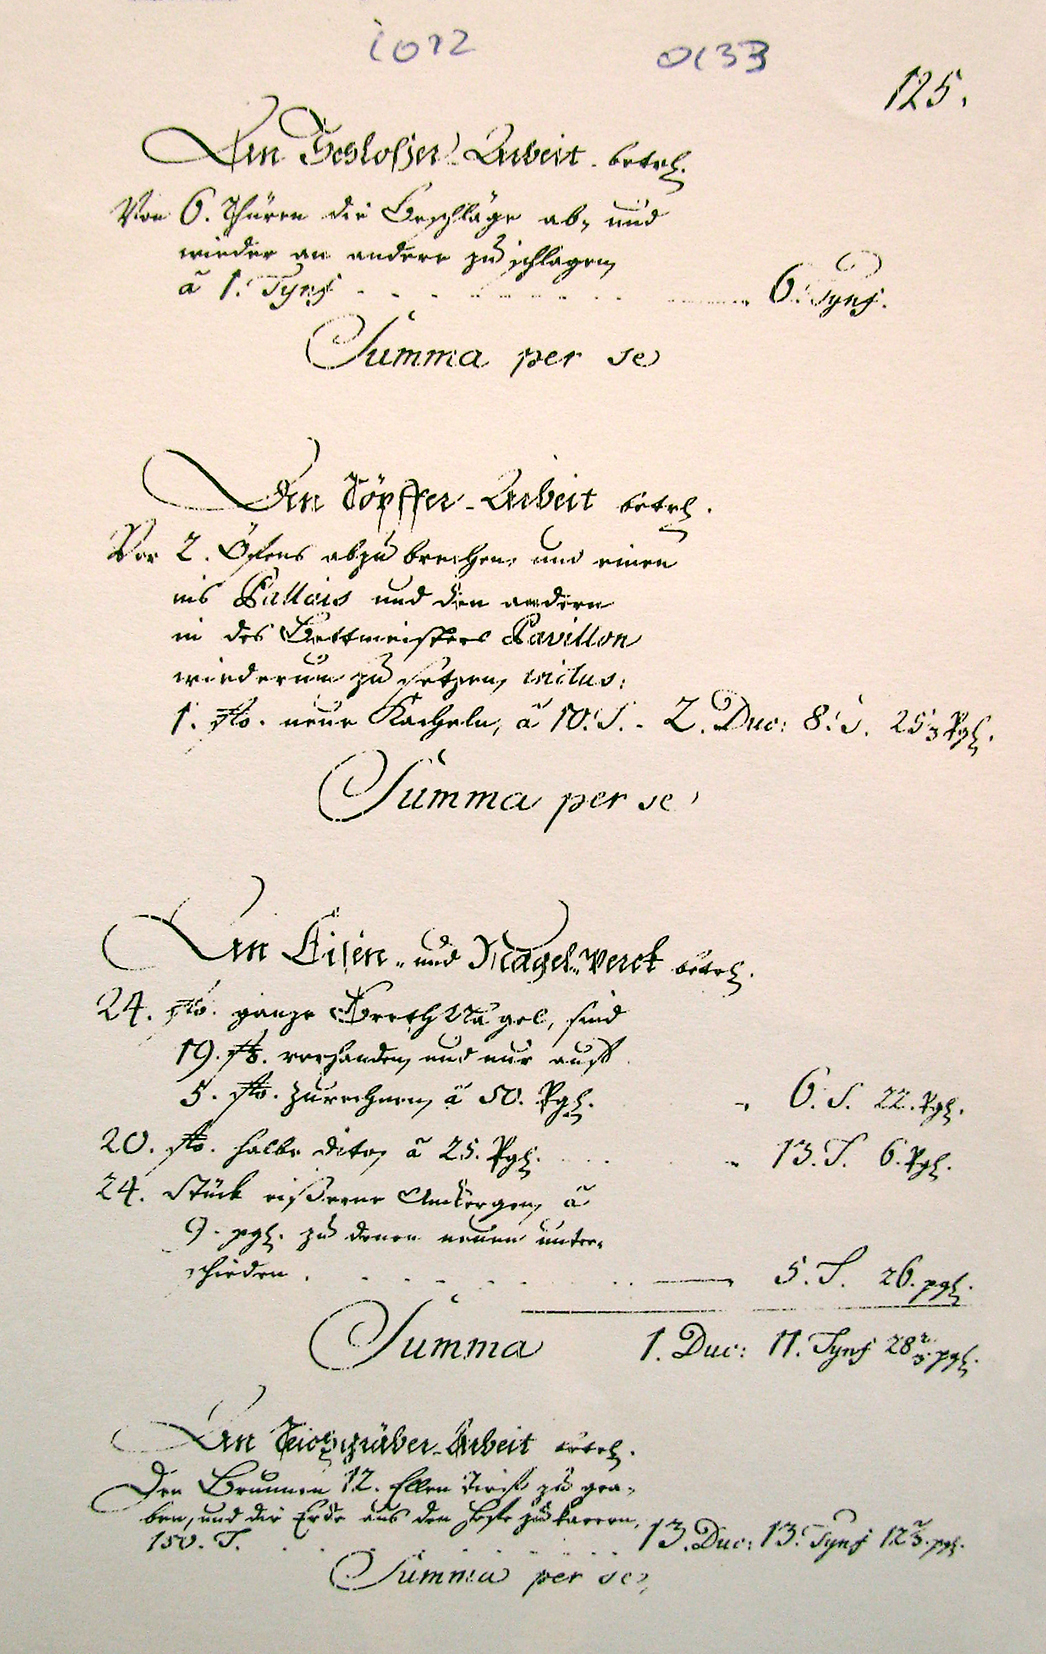 1012 0133
125.
An Schloßer-Arbeit betrh.
Von 6. Thüren die Beschläge ab- und
wieder an andere zu schlagen,
à 1. Tynf . . . . . . . . . 6. Tynf.
Summa per se
Den Töpffer-Arbeit betrh.
Vor 2. Öfens abzubrechen, und einen
ins Pallais und den andern
in des Bettmeisters Pavillon
wiederum zu setzen, inclus:
1. ßo. neue Kacheln, à 10. T. - 2. Duc: 8. T. 25⅓ Pgh.
Summa per se
An Eisen- und Nagel-Werck betrh.
24. ßo. ganze Breth Nägel, sind
19. ßo. vorhanden, und nur auff
5. ßo. zurechnen, à 50. Pgh. 6. T. 22. Pgh.
20. ßo. halbe dito, à 25. Pgh. 13. T. 6. Pgh.
24. Stück eißerne à
9. pgh. zu denen neuen unter-
schieden . . . . . . . . 5. T. 26. pgh.
Summa 1. Duc: 11. Tynf 28⅔ pgh.
An Teichgräber-Arbeit betrh.
Den Brunnen 12. Ellen tieff zu gra-
ben, und die Erde aus den Hofe zu karren,
150. T. . . . . . . . . 13. Duc: 13. Tynf 12⅔ pgh.
Summa per se